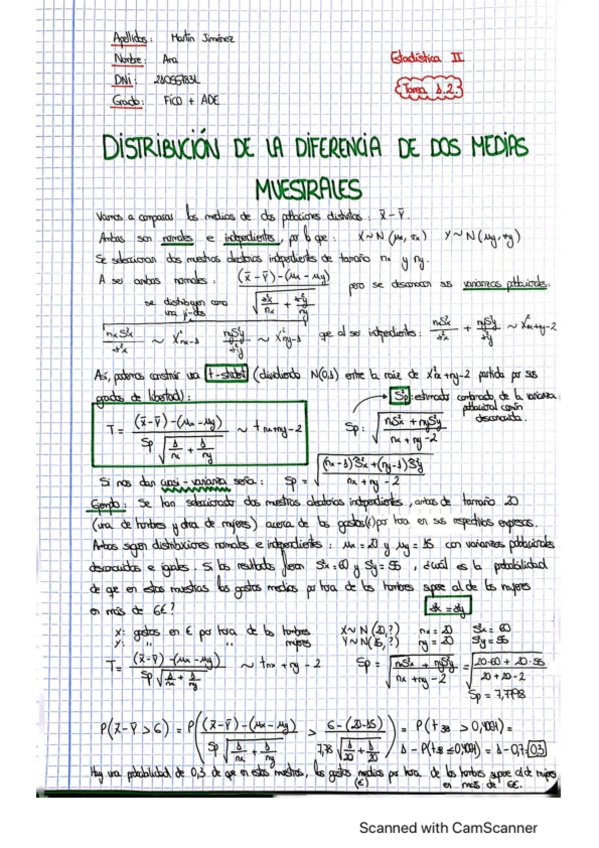 Apellidos: Martín Jiménez
Nombre: Ana
Estadística II
DNI:
Tarea 1.2.
Grado: FICO + ADE
DISTRIBUCIÓN DE LA DIFERENCIA DE DOS MEDIAS
MUESTRALES
Vamos a comparar las medias de dos poblaciones distintas: x̄ - ȳ.
Ambas son normales e independientes, por lo que: X~N(μx, σx) Y~N(μy, σy)
Se seleccionan dos muestras aleatorias independientes de tamaño nx y ny.
A ser ambas normales: (x̄-ȳ)-(μx-μy) / √(σ²x/nx + σ²y/ny) pero se desconocen sus varianzas poblacionales.
se distribuyen como una ji-dos
nxS²x/σ²x ~ X²nx-1 nyS²y/σ²y ~ X²ny-1 que al ser independientes: nxS²x/σ²x + nyS²y/σ²y ~ X²nx+ny-2
Así, podemos construir una t-student (dividiendo N(0,1) entre la raíz de X²nx+ny-2 partida por sus
grados de libertad):
Sp: estimador combinado de la varianza
poblacional común
desconocida.
T = (x̄-ȳ)-(μx-μy) / Sp√(1/nx + 1/ny) ~ t nx+ny-2
Sp: √(nxS²x + nyS²y / nx + ny - 2)
Si nos dan cuasi-varianza sería: Sp = √((nx-1)S²x+(ny-1)S²y / nx + ny - 2)
Ejemplo: Se han seleccionado dos muestras aleatorias independientes, ambas de tamaño 20
(una de hombres y otra de mujeres) acerca de los gastos(€) por hora en sus respectivas empresas.
Ambas siguen distribuciones normales e independientes: μx = 20 y μy = 15 con varianzas poblacionales
desconocidas e iguales. Si los resultados fueran S²x = 60 y S²y = 55, ¿cuál es la probabilidad
de que en estas muestras los gastos medios por hora de los hombres supere al de las mujeres
en más de 6€?
σ²x = σ²y
x: gastos en € por hora de los hombres X~N(20,?) nx = 20 S²x = 60
y: " " " mujeres Y~N(15,?) ny = 20 S²y = 55
T = (x̄-ȳ)-(μx-μy) / Sp√(1/nx + 1/ny) ~ t nx + ny - 2 Sp = √(nxS²x + nyS²y / nx + ny - 2) = √(20·60 + 20·55 / 20 + 20 - 2)
Sp = 7,7798
P(x̄-ȳ > 6) = P((x̄-ȳ)-(μx-μy) / Sp√(1/nx + 1/ny) > 6-(20-15) / 7,78√(1/20 + 1/20)) = P(t38 > 0,4064) =
1 - P(t38 ≤ 0,4064) = 1 - 0,7 = 0,3
Hay una probabilidad de 0,3 de que en estas muestras, los gastos medios por hora de los hombres supere al de mujeres
(€) en más de 6€.
Scanned with CamScanner